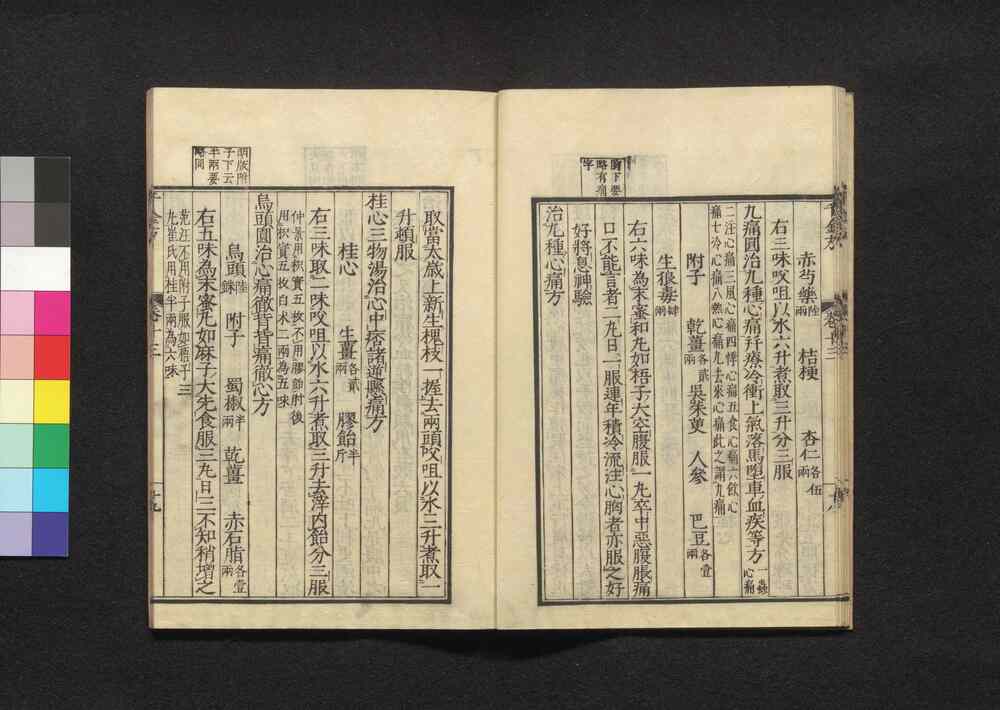 胸下要
略有痛
字
赤芍藥陸兩　桔梗　杏仁各伍兩
右三味㕮咀以水六升煮取三升分三服
九痛圓治九種心痛并療冷衝上氣落馬墮車血疾等方一蟲心痛
二注心痛三風心痛四悸心痛五食心痛六飲心
痛七冷心痛八熱心痛九去來心痛此之謂九痛
附子　乾薑各貳兩　吳茱萸　人參　巴豆各壹兩
生狼毒肆兩
右六味為末蜜和丸如梧子大空腹服一丸卒中惡腹脹痛
口不能言者二丸日一服連年積冷流注心胸者亦服之好
好將息神驗
治九種心痛方
明版附
子下云
半兩要
略同
取當太歲上新生槐枝一握去兩頭㕮咀以水三升煮取一
升頓服
桂心三物湯治心中痞諸逆懸痛方
桂心　生薑各貳兩　膠飴半斤
右三味取二味㕮咀以水六升煮取三升去滓內飴分三服
仲景用枳實五枚不用膠飴肘後
用枳實五枚白朮二兩為五味
烏頭圓治心痛徹背背痛徹心方
烏頭陸銖　附子　蜀椒半兩　乾薑　赤石脂各壹兩
右五味為末蜜丸如麻子大先食服三丸日三不知稍增之
范汪不用附子服如梧子三
丸崔氏用桂半兩為六味